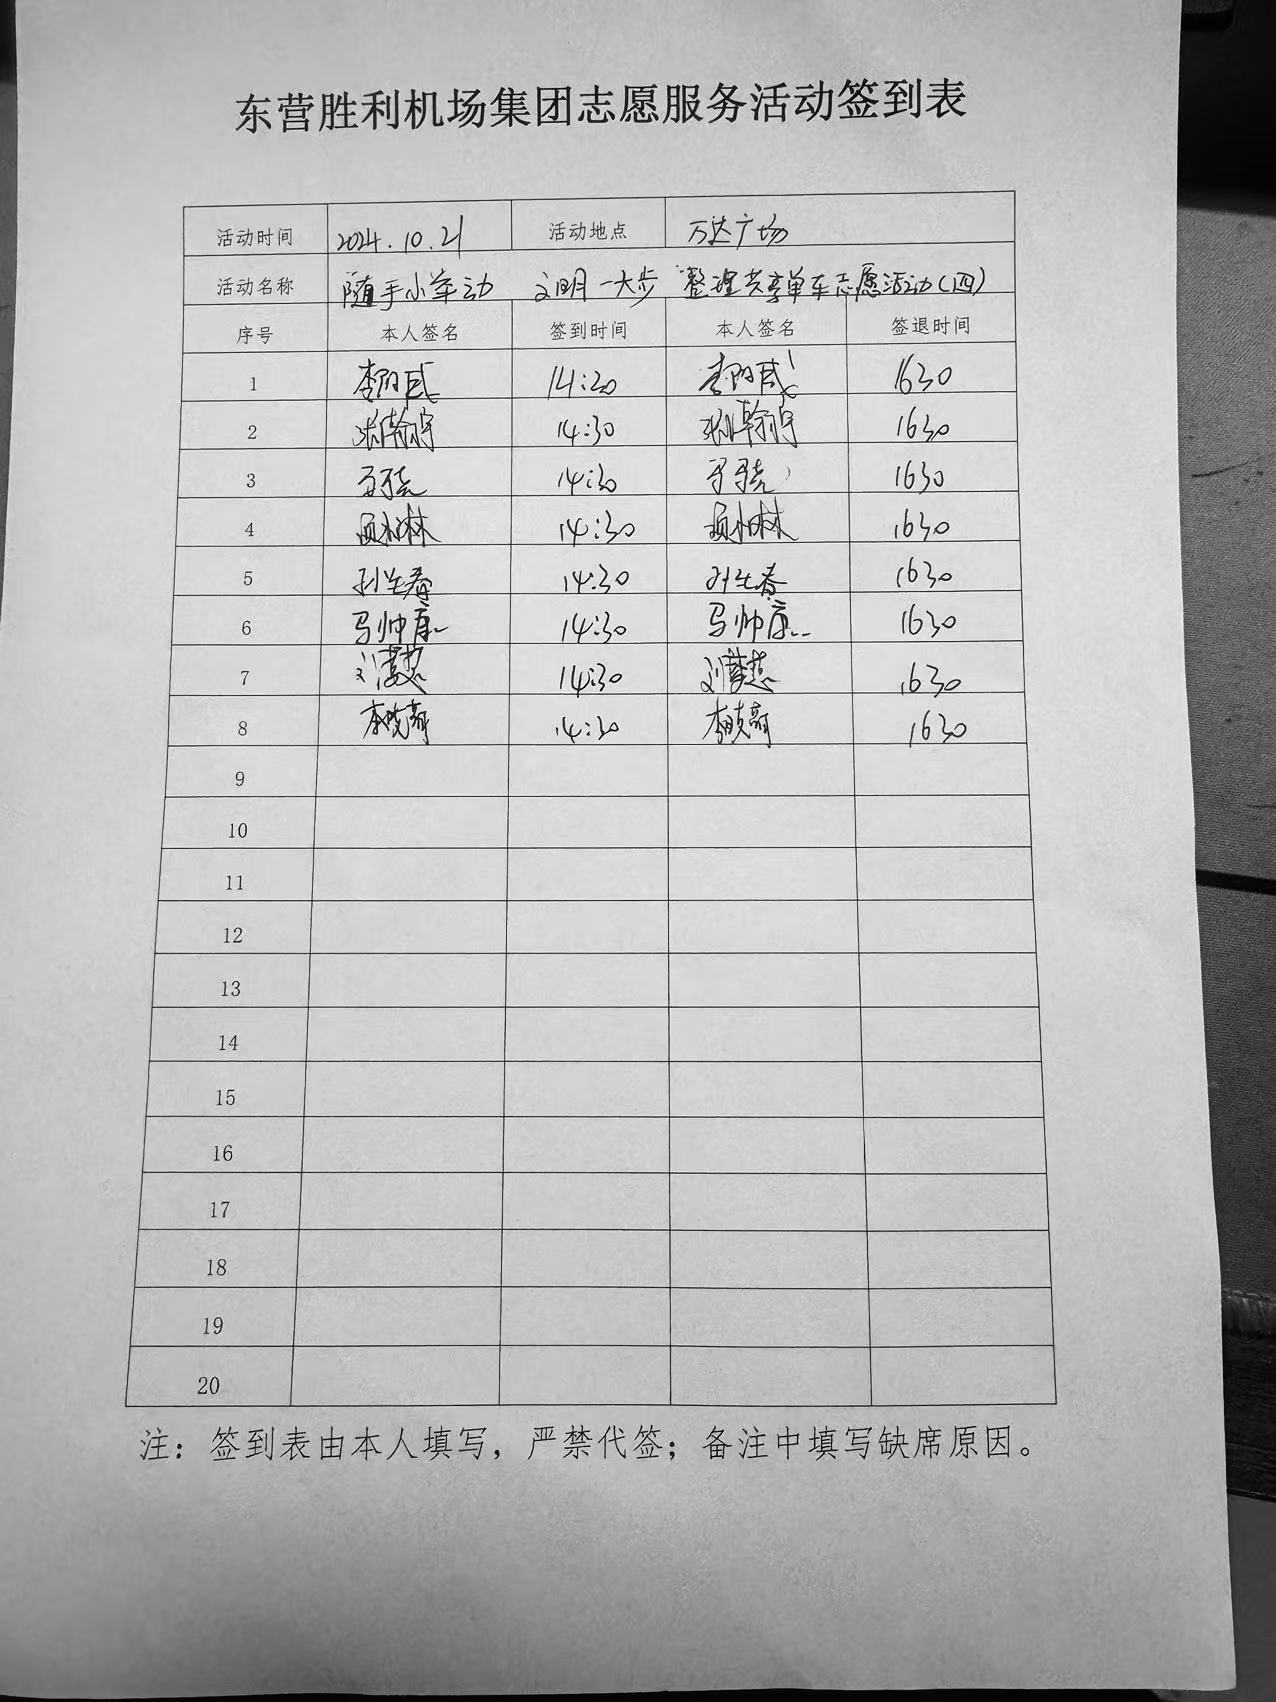 东营胜利机场集团志愿服务活动签到表
活动时间 2024.10.21 活动地点 万达广场
活动名称 随手小举动 文明一大步 整理共享单车志愿活动(四)
序号 本人签名 签到时间 本人签名 签退时间
1 14:20 1630
2 张瀚宇 14:30 张瀚宇 1630
3 14:30 1630
4 14:30 1630
5 孙生春 14:30 孙生春 1630
6 马帅康 14:30 马帅康 1630
7 14:30 1630
8 14:30 1630
9
10
11
12
13
14
15
16
17
18
19
20
注：签到表由本人填写，严禁代签；备注中填写缺席原因。